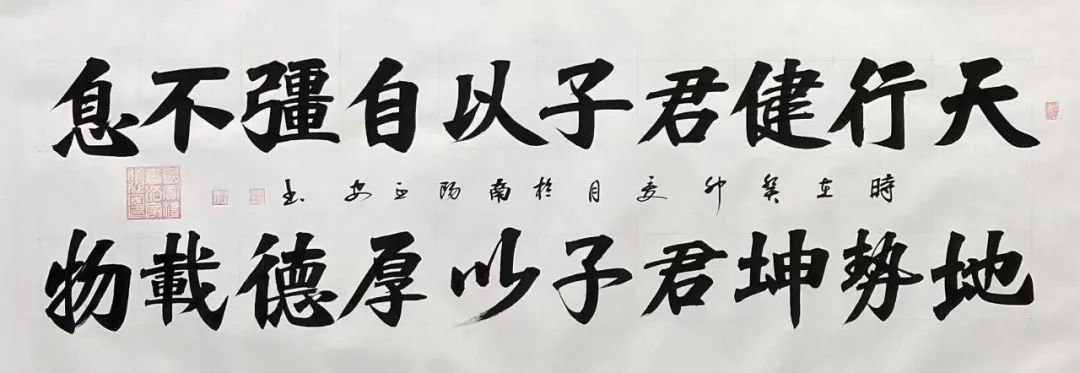 天行健君子以自彊不息
時在癸卯夏月於南陽正安書
地勢坤君子以厚德載物